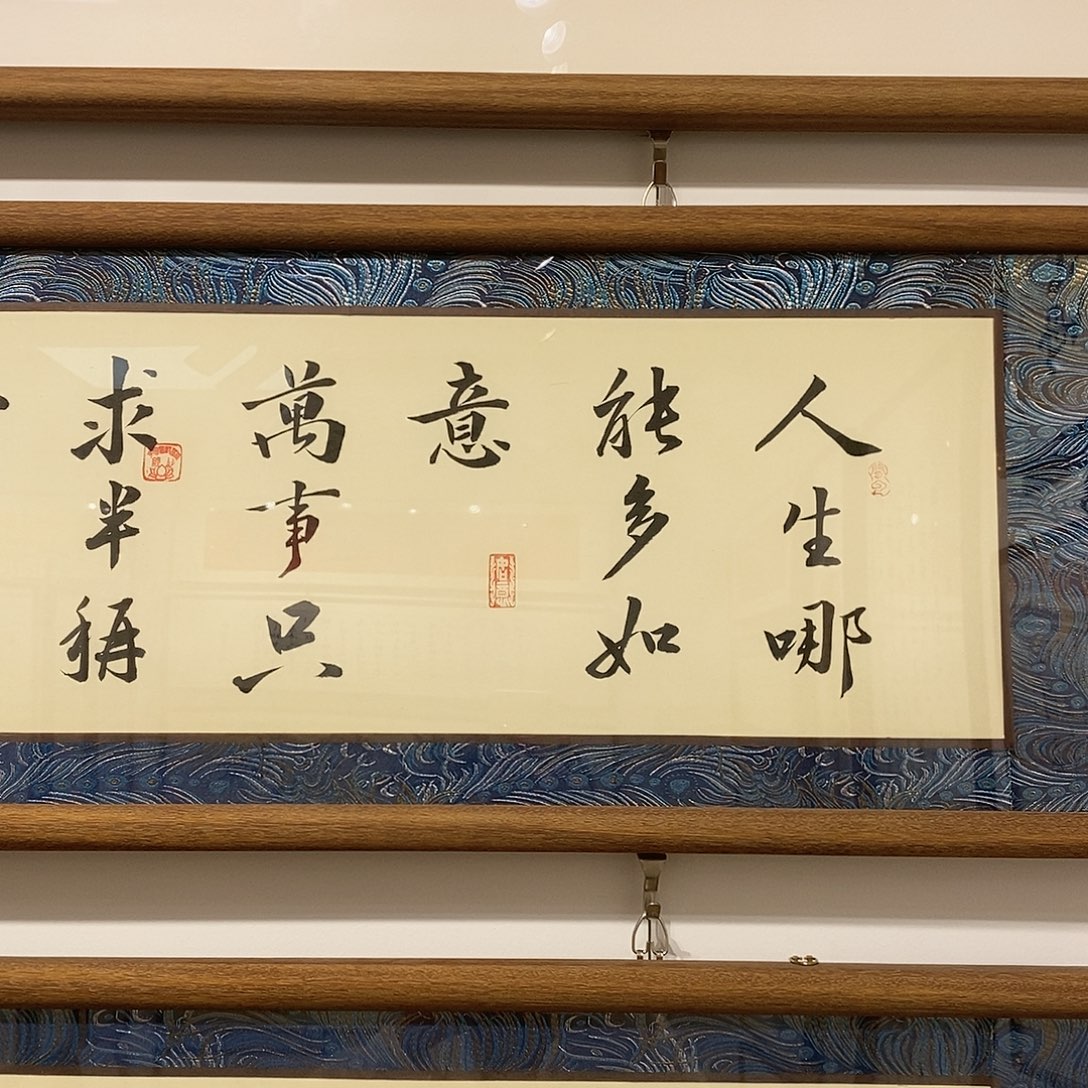 人生哪
能多如
意
萬事只
求半稱